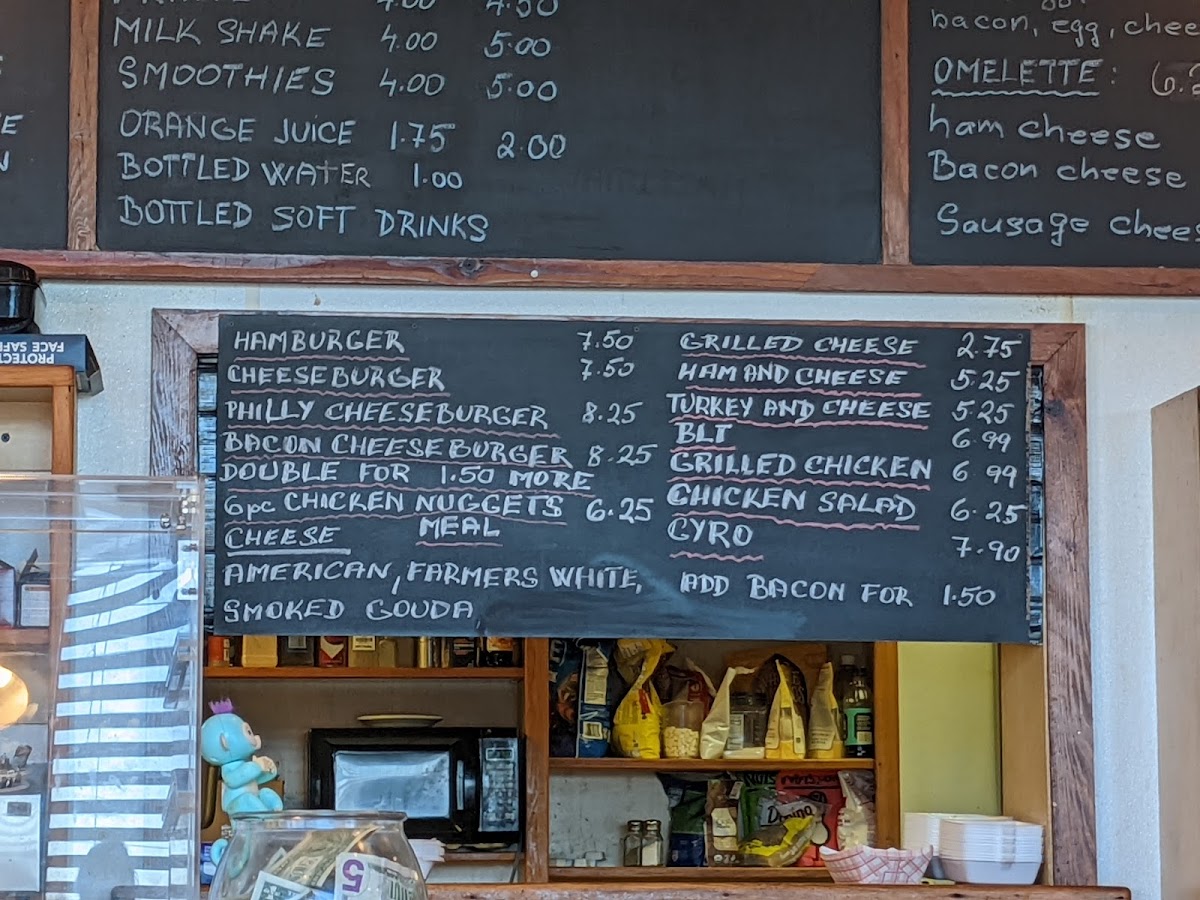 4.00 4.50
MILK SHAKE 4.00 5.00
SMOOTHIES 4.00 5.00
ORANGE JUICE 1.75 2.00
BOTTLED WATER 1.00
BOTTLED SOFT DRINKS
bacon, egg, chee
OMELETTE:
ham cheese
Bacon cheese
Sausage chees
HAMBURGER 7.50
CHEESEBURGER 7.50
PHILLY CHEESEBURGER 8.25
BACON CHEESEBURGER 8.25
DOUBLE FOR 1.50 MORE
6pc CHICKEN NUGGETS 6.25
MEAL
CHEESE
AMERICAN, FARMERS WHITE,
SMOKED GOUDA
GRILLED CHEESE 2.75
HAM AND CHEESE 5.25
TURKEY AND CHEESE 5.25
BLT 6.99
GRILLED CHICKEN 6.99
CHICKEN SALAD 6.25
GYRO 7.90
ADD BACON FOR 1.50
PROTECT
FACE SAFE
5